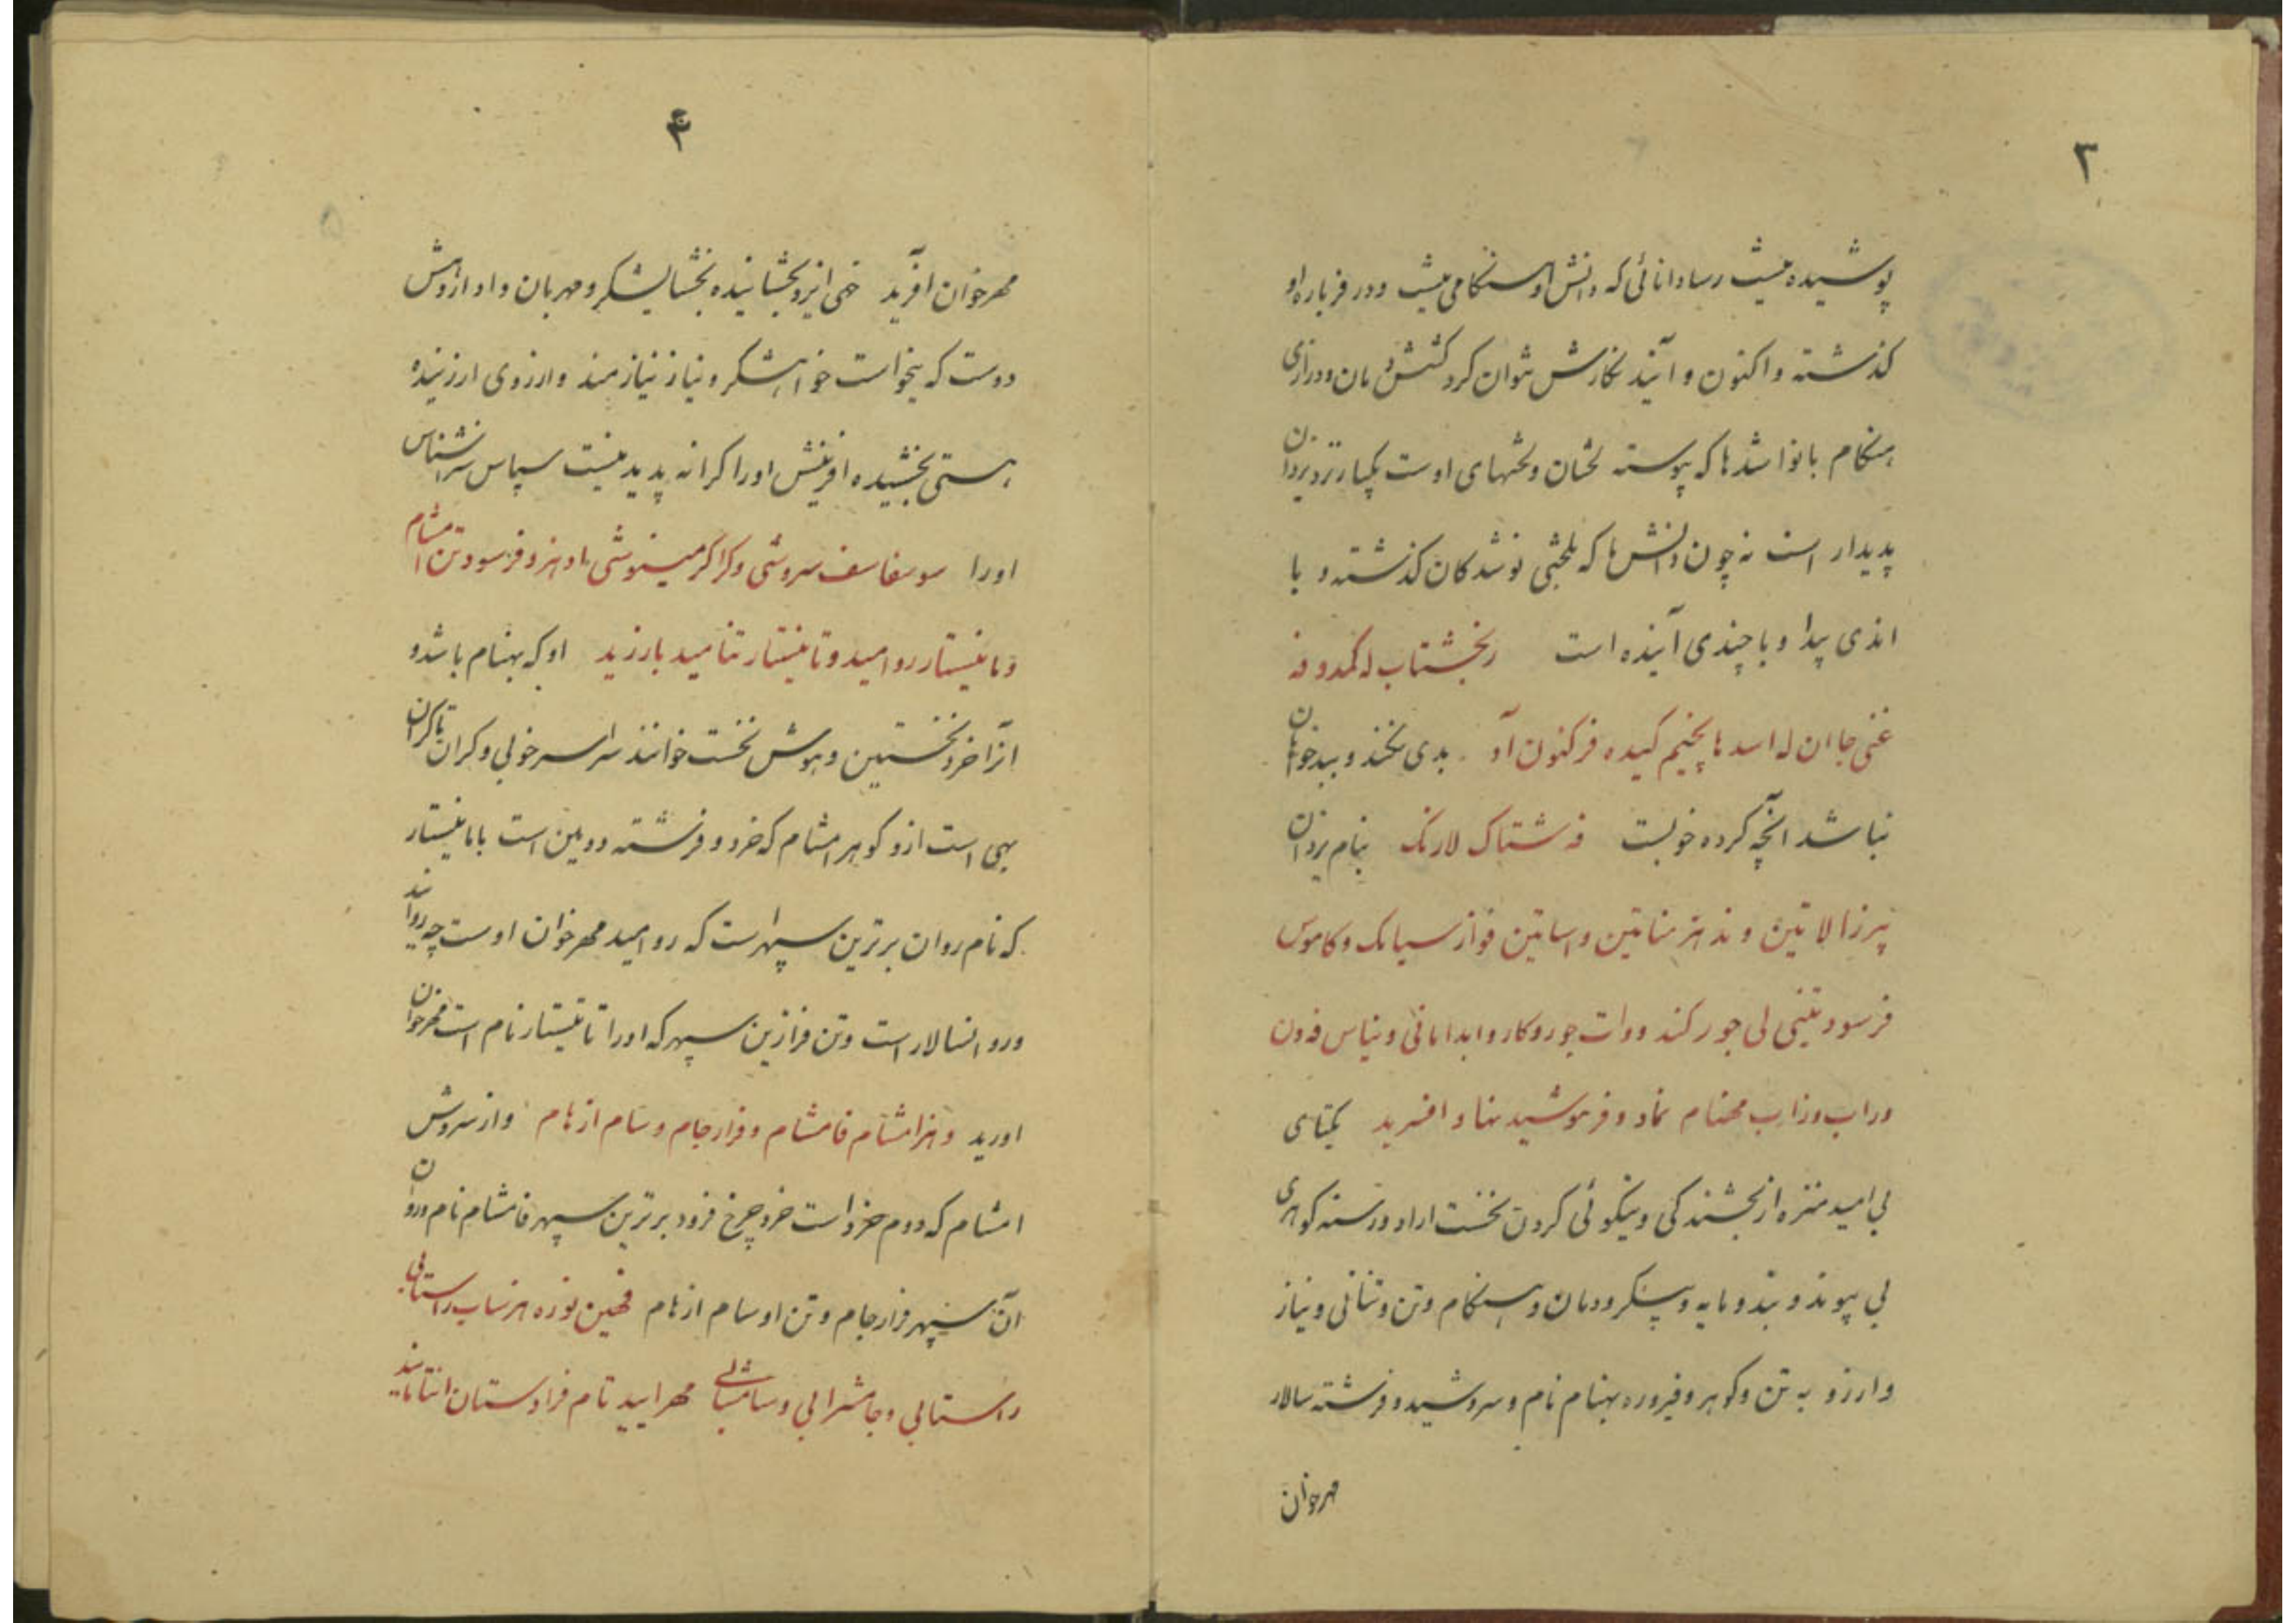 ۳
پوشیده نیست رسا دانائی که دانش او هنکامی نیست و در فرباره او
کذشته و اکنون و آینده نکارش نتوان کرد کشش و مان و درازی
هنکام با نواشدها که پیوسته لختان و لختهای اوست یکباره نزد یزدان
پدیدار است نه چون دانش ما که لختی نوشدکان کذشته و با
اندی پیدا و با چندی آینده است رنجشتاب له کمدو فه
غنی جا ان له اسد ها پخیم کیده فرکنون آد بدی نکند و ببد خواهان
نباشد آنچه کرده خوبست فه شتاک لارنک بنام یزدان
پرزالا تین و ند هز مناتین و اساتین فواز سیامک و کاموس
فرسود تنیی لی جور کند ووات جور و کار و ابدامانی و نیاس فه ون
وراب وزاب مهنام نماد و فرموشید نها و افسرید یکتای
بی امید مزه از بخشندکی و نیکوئی کردن نخست ازاد و رسته کوهری
بی پیوند و بند و مایه و پیکر و دمان و هنکام و تن و تنانی و نیاز
و ارزو به تن و کوهر و فیروره بهنام نام و سروشبد و فرشته سالار
مهرخوان
۴
مهرخوان آفرید خهی ایزد بخشاینده بخشایشکر و مهربان و داد ازوش
دوست که نخواست خواهشکر و نیاز نیازمند و ارزوی ارزنیده
هستی بخشیده افرینش اورا کرانه پدید نیست سپاس سرناشناس
اورا سومفاسف سروشی و کراکر مینوشی باد هز و فرسودتن امشام
و مانیستار روامید و تانیستار تنامید بارزید او که بهنام باشد و
انرا خرد نخستین و هوش نخست خوانند سراسر خوبی و کران تا کران
بهی است ازو کوهر امشام که خرد و فرشته دویمین است با مانیستار
که نام روان برترین سپهراست که روامید مهرخوان اوست چه روانبد
و روانسالار است و تن فرازین سپهر که اورا تانیستار نام است مهرخوان
اورید و هز امشام فامشام و فرارجام و سام ازهام و از سروش
امشام که دوم خرد است خرد چرخ فرود برترین سپهر فامشام نام و روان
آن سپهر فرارجام و تن او سام ازهام فهین نوزه هرساب راستانی
راستابی و جامشرابی و سامشابی مهرایید تام فرادستان انتامانید